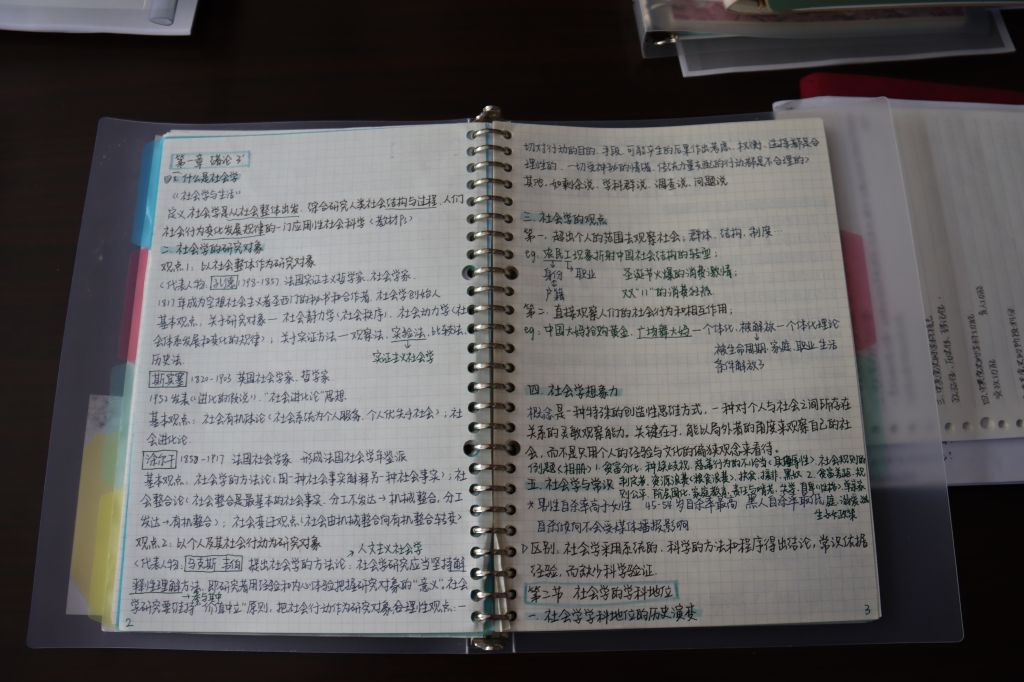 第一章 绪论
一、什么是社会学
《社会学与生活》
定义：社会学是从社会整体出发，综合研究人类社会结构与过程、人们
社会行为变化发展规律的一门应用性社会科学（教材P5）
二、社会学的研究对象
观点1：以社会整体作为研究对象
〈代表人物：孔德 1798-1857 法国实证主义哲学家、社会学家
1817年成为空想社会主义者圣西门的秘书和合作者，社会学创始人
基本观点：关于研究对象—社会静力学（社会秩序）、社会动力学（社
会体系发展和变化的规律）；关于实证方法—观察法、实验法、比较法、
历史法。
实证主义社会学
斯宾塞 1820-1903 英国社会学家、哲学家
发表《进化的假说》，"社会进化论"思想
基本观点：社会有机体论（社会系统为个人服务，个人优先于社会）；社
会进化论
涂尔干 1858-1917 法国社会学家 形成法国社会学年鉴派
基本观点：社会学的方法论（用一种社会事实解释另一种社会事实）；社
会整合论（社会整合是最基本的社会事实，分工不发达→机械整合，分工
发达→有机整合）；社会变迁观点（社会由机械整合向有机整合转变）
观点2：以个人及其社会行动为研究对象
人文主义社会学
〈代表人物：马克斯·韦伯 提出社会学的方法论：社会学研究应当坚持解
释性理解方法，即研究者用经验和内心体验把握研究对象的"意义"，社会
学研究要坚持"价值中立"原则，把社会行动作为研究对象，合理性观点：一
2
切对行动的目的、手段、可能产生的后果作出考虑、权衡、选择都是合
理性的，一切受神秘的情绪、传统力量支配的行动都是不合理的〉
其他：如剩余说、学科群说、调查说、问题说
三、社会学的观点
第一，超出个人的范围去观察社会；群体、结构、制度…
eg. 农民工现象折射中国社会结构的转型；
身份 职业 圣诞节火爆的消费激情；
户籍 双"11"的消费狂热
第二，直接观察人们的社会行为和相互作用；
eg. 中国大妈抢购黄金、广场舞大妈 一个体化、被解放一个体化理论
被生命周期、家庭、职业生活
条件解放了
四、社会学想象力
概念：是一种特殊的创造性思维方式，一种对个人与社会之间所存在
关系的灵敏观察能力。关键在于，能以局外者的角度来观察自己的社
会，而不是只用个人的经验与文化的偏狭观念来看待。
五、社会学与常识
*男性自杀率高于女性 45-54岁自杀率最高 黑人自杀率较低
自杀倾向不会受媒体播报影响
▷区别：社会学采用系统的、科学的方法和程序得出结论，常识依据
经验，而缺少科学验证
第二节 社会学的学科地位
一、社会学学科地位的历史演变
3